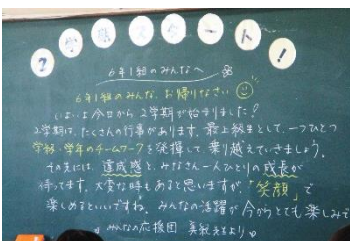 2学期スタート!
6年1組のみんなへ
6年1組のみんな、お帰りなさい
いよいよ今日から2学期が始まりました!
2学期は、たくさんの行事があります。最上級生として、一つひとつ
学級・学年のチームワークを発揮して、乗り越えていきましょう。
その先には、達成感と、みなさん一人ひとりの成長が
待ってます。大変な時もあると思いますが、「笑顔」で
楽しめるといいですね。みんなの活躍が今からとても楽しみで
みんなの応援団
より